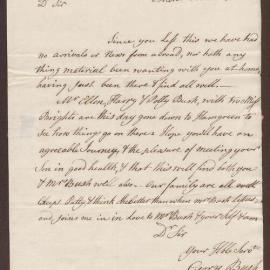 Dr Sir
Since you left this we have had
no arrivals or News from abroad, nor hath any
thing material been wanting with you at home,
having just been there & find all well.
Mr Ellen, Harry & Patty Bush, with two Miss
Brights are this day gone down to Hamgreen to
see how things go on there & Hope you'll have an
agreeable Journey, & the pleasure of meeting your
Son in good health, & that this will find both you
& Mrs Bush well also. Our family are all well
Except Patty & I think she's better than when Mrs Bush left us
and joins me in love to Mrs Bush & your self & am
Dr Sir
Your Hble Servt
George Bush